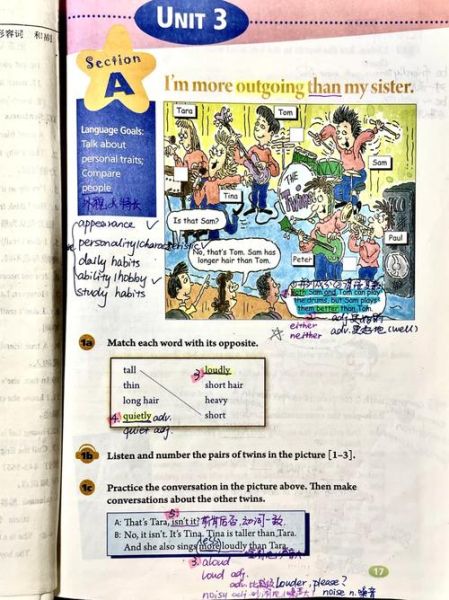 形容词
UNIT 3
Section
A
I'm more outgoing than my sister.
Language Goals:
Talk about
personal traits;
Compare
people
appearance ✓
personality/characteristic ✓
daily habits
ability/hobby ✓
study habits
Tara
Tom
Sam
THE
Twins
Tina
Is that Sam?
Paul
No, that's Tom. Sam has
longer hair than Tom.
Peter
Both Sam and Tom can play
the drums, but Sam plays
them better than Tom.
either
neither
adj.
adv. (well)
1a Match each word with its opposite.
tall 3. loudly
thin short hair
long hair heavy
4. quietly adv. short
quiet adj.
1b Listen and number the pairs of twins in the picture [1–3].
1c Practice the conversation in the picture above. Then make
conversations about the other twins.
5.
A: That's Tara, isn't it? 前肯后否,动词一致
B: No, it isn't. It's Tina. Tina is taller than Tara.
less
And she also sings more loudly than Tara.
3. aloud
loud adj. louder, please?
noisy adj. noise n. 噪音
17